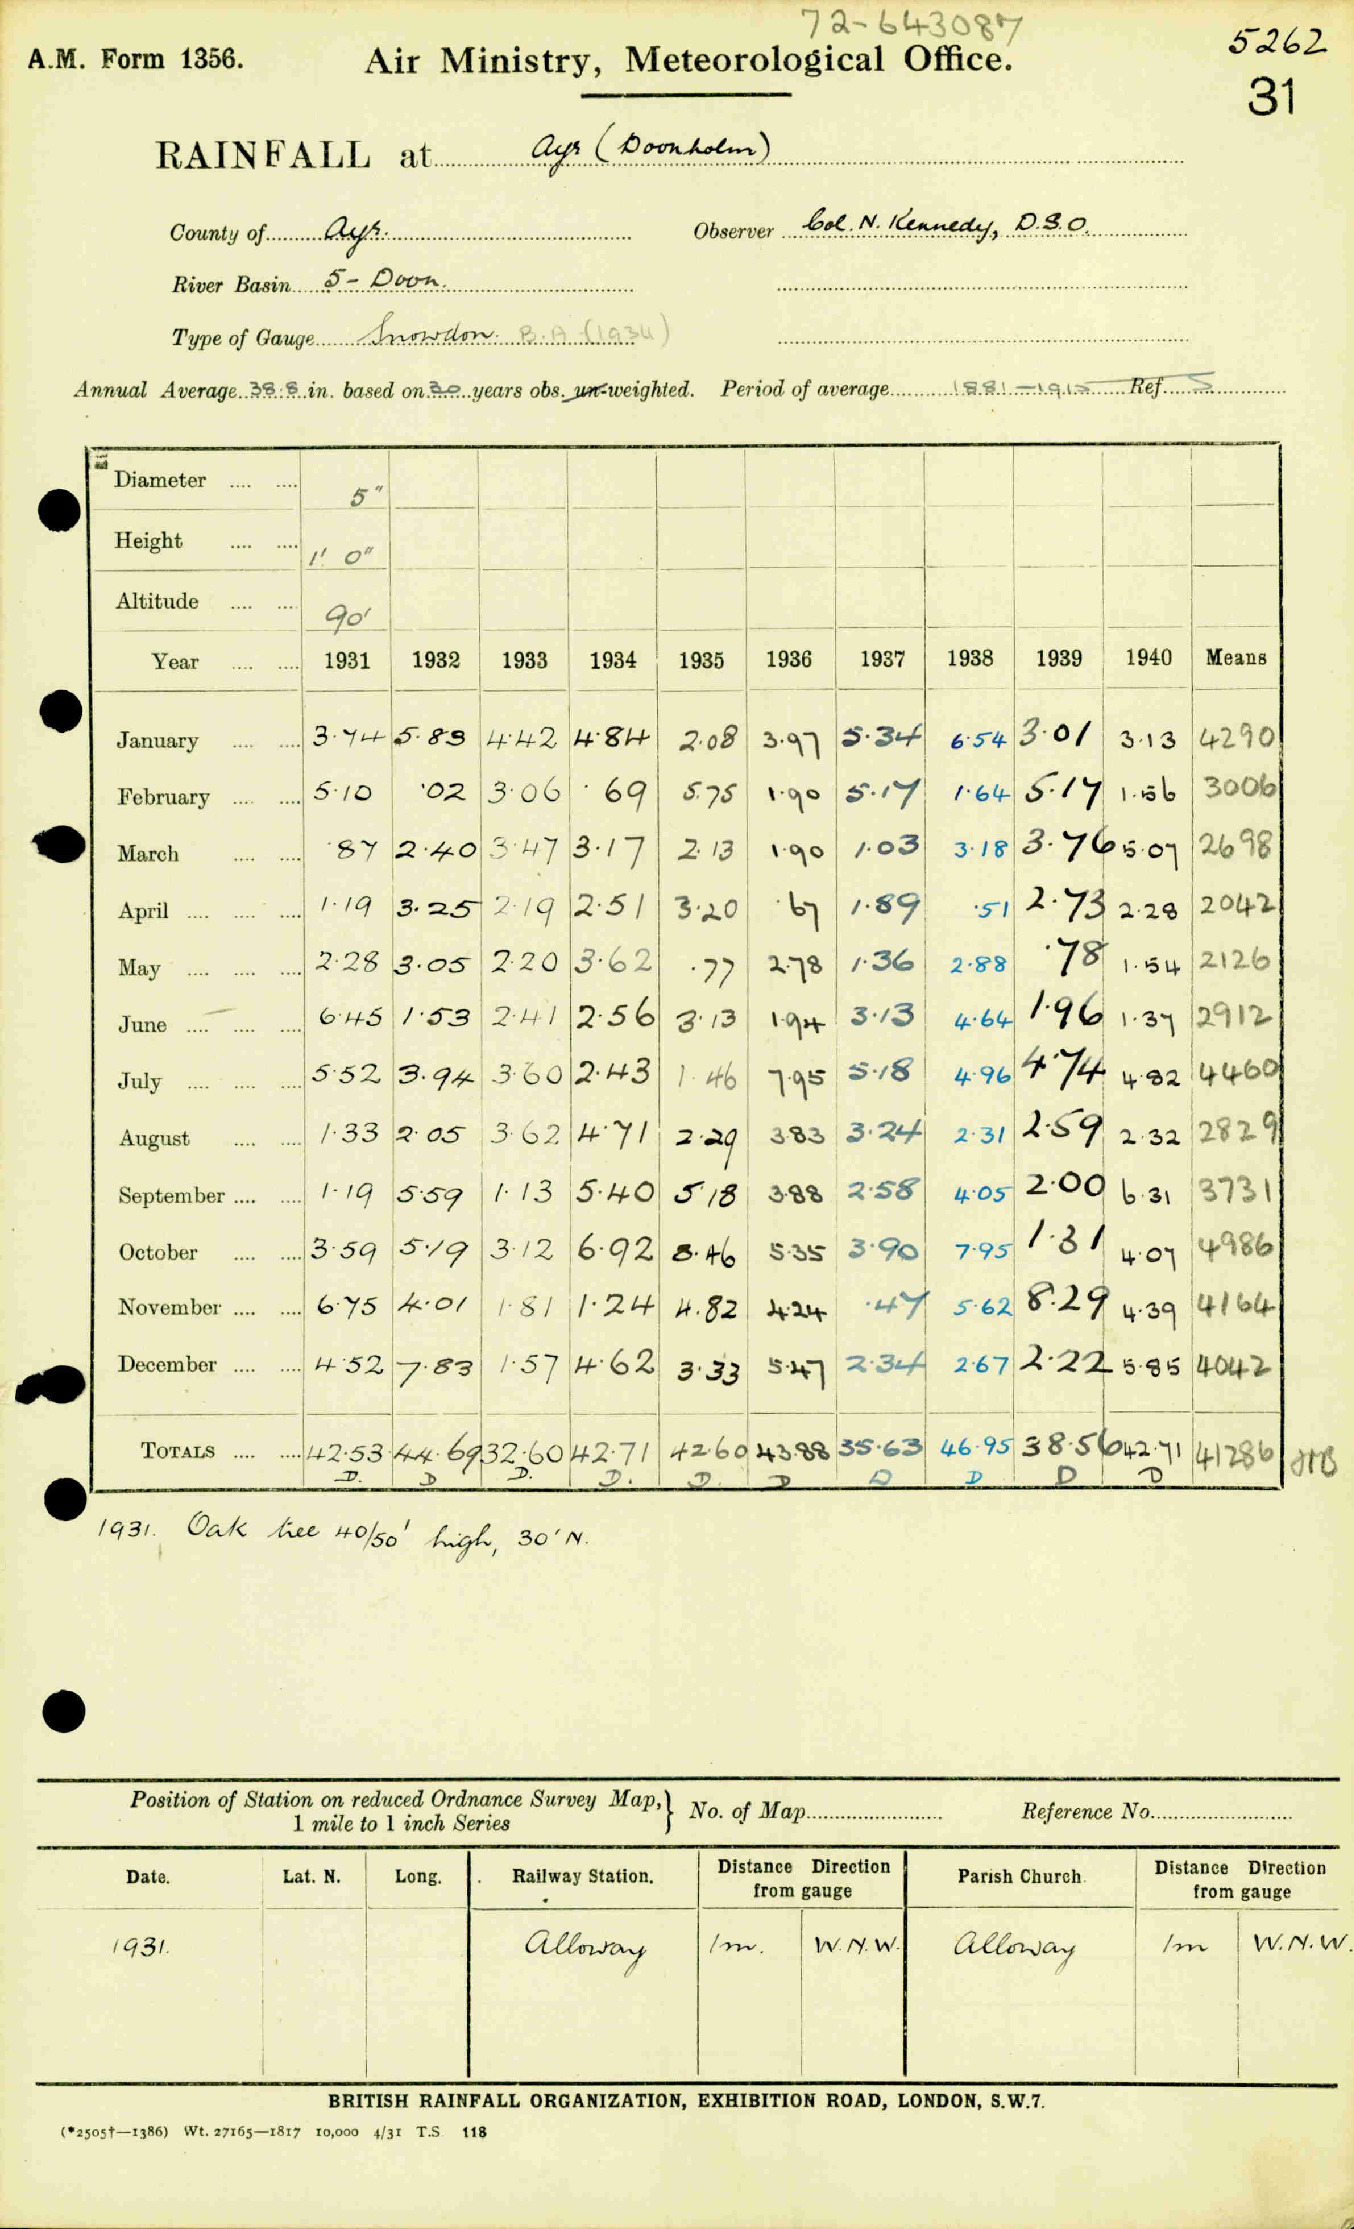 72-643087
5262
A.M. Form 1356. Air Ministry, Meteorological Office.
31
RAINFALL at Ayr (Doonholm)
County of Ayr. Observer Col. N. Kennedy, D.S.O.
River Basin 5 - Doon.
Type of Gauge Snowdon. B.A (1934)
Annual Average 38.8 in. based on 30 years obs. un-weighted. Period of average 1881-1915 Ref. S
Diameter 5"
Height 1' 0"
Altitude 90'
Year 1931 1932 1933 1934 1935 1936 1937 1938 1939 1940 Means
January 3.74 5.83 4.42 4.84 2.08 3.97 5.34 6.54 3.01 3.13 4290
February 5.10 .02 3.06 .69 5.75 1.90 5.17 1.64 5.17 1.56 3006
March .87 2.40 3.47 3.17 2.13 1.90 1.03 3.18 3.76 5.07 2698
April 1.19 3.25 2.19 2.51 3.20 .67 1.89 .51 2.73 2.28 2042
May 2.28 3.05 2.20 3.62 .77 2.78 1.36 2.88 .78 1.54 2126
June 6.45 1.53 2.41 2.56 3.13 1.94 3.13 4.64 1.96 1.37 2912
July 5.52 3.94 3.60 2.43 1.46 7.95 5.18 4.96 4.74 4.82 4460
August 1.33 2.05 3.62 4.71 2.29 3.83 3.24 2.31 2.59 2.32 2829
September 1.19 5.59 1.13 5.40 5.18 3.88 2.58 4.05 2.00 6.31 3731
October 3.59 5.19 3.12 6.92 8.46 5.35 3.90 7.95 1.31 4.07 4986
November 6.75 4.01 1.81 1.24 4.82 4.24 .47 5.62 8.29 4.39 4164
December 4.52 7.83 1.57 4.62 3.33 5.47 2.34 2.67 2.22 5.85 4042
TOTALS 42.53 44.69 32.60 42.71 42.60 43.88 35.63 46.95 38.56 42.71 41286
D. D D. D. D. D D D D D
1931. Oak tree 40/50' high, 30' N.
Position of Station on reduced Ordnance Survey Map, } No. of Map Reference No.
1 mile to 1 inch Series
Date. Lat. N. Long. Railway Station. Distance Direction from gauge Parish Church. Distance Direction from gauge
1931. Alloway 1m. W.N.W. Alloway 1m W.N.W.
BRITISH RAINFALL ORGANIZATION, EXHIBITION ROAD, LONDON, S.W.7.
(*2505†—1386) Wt. 27165—1817 10,000 4/31 T.S. 118